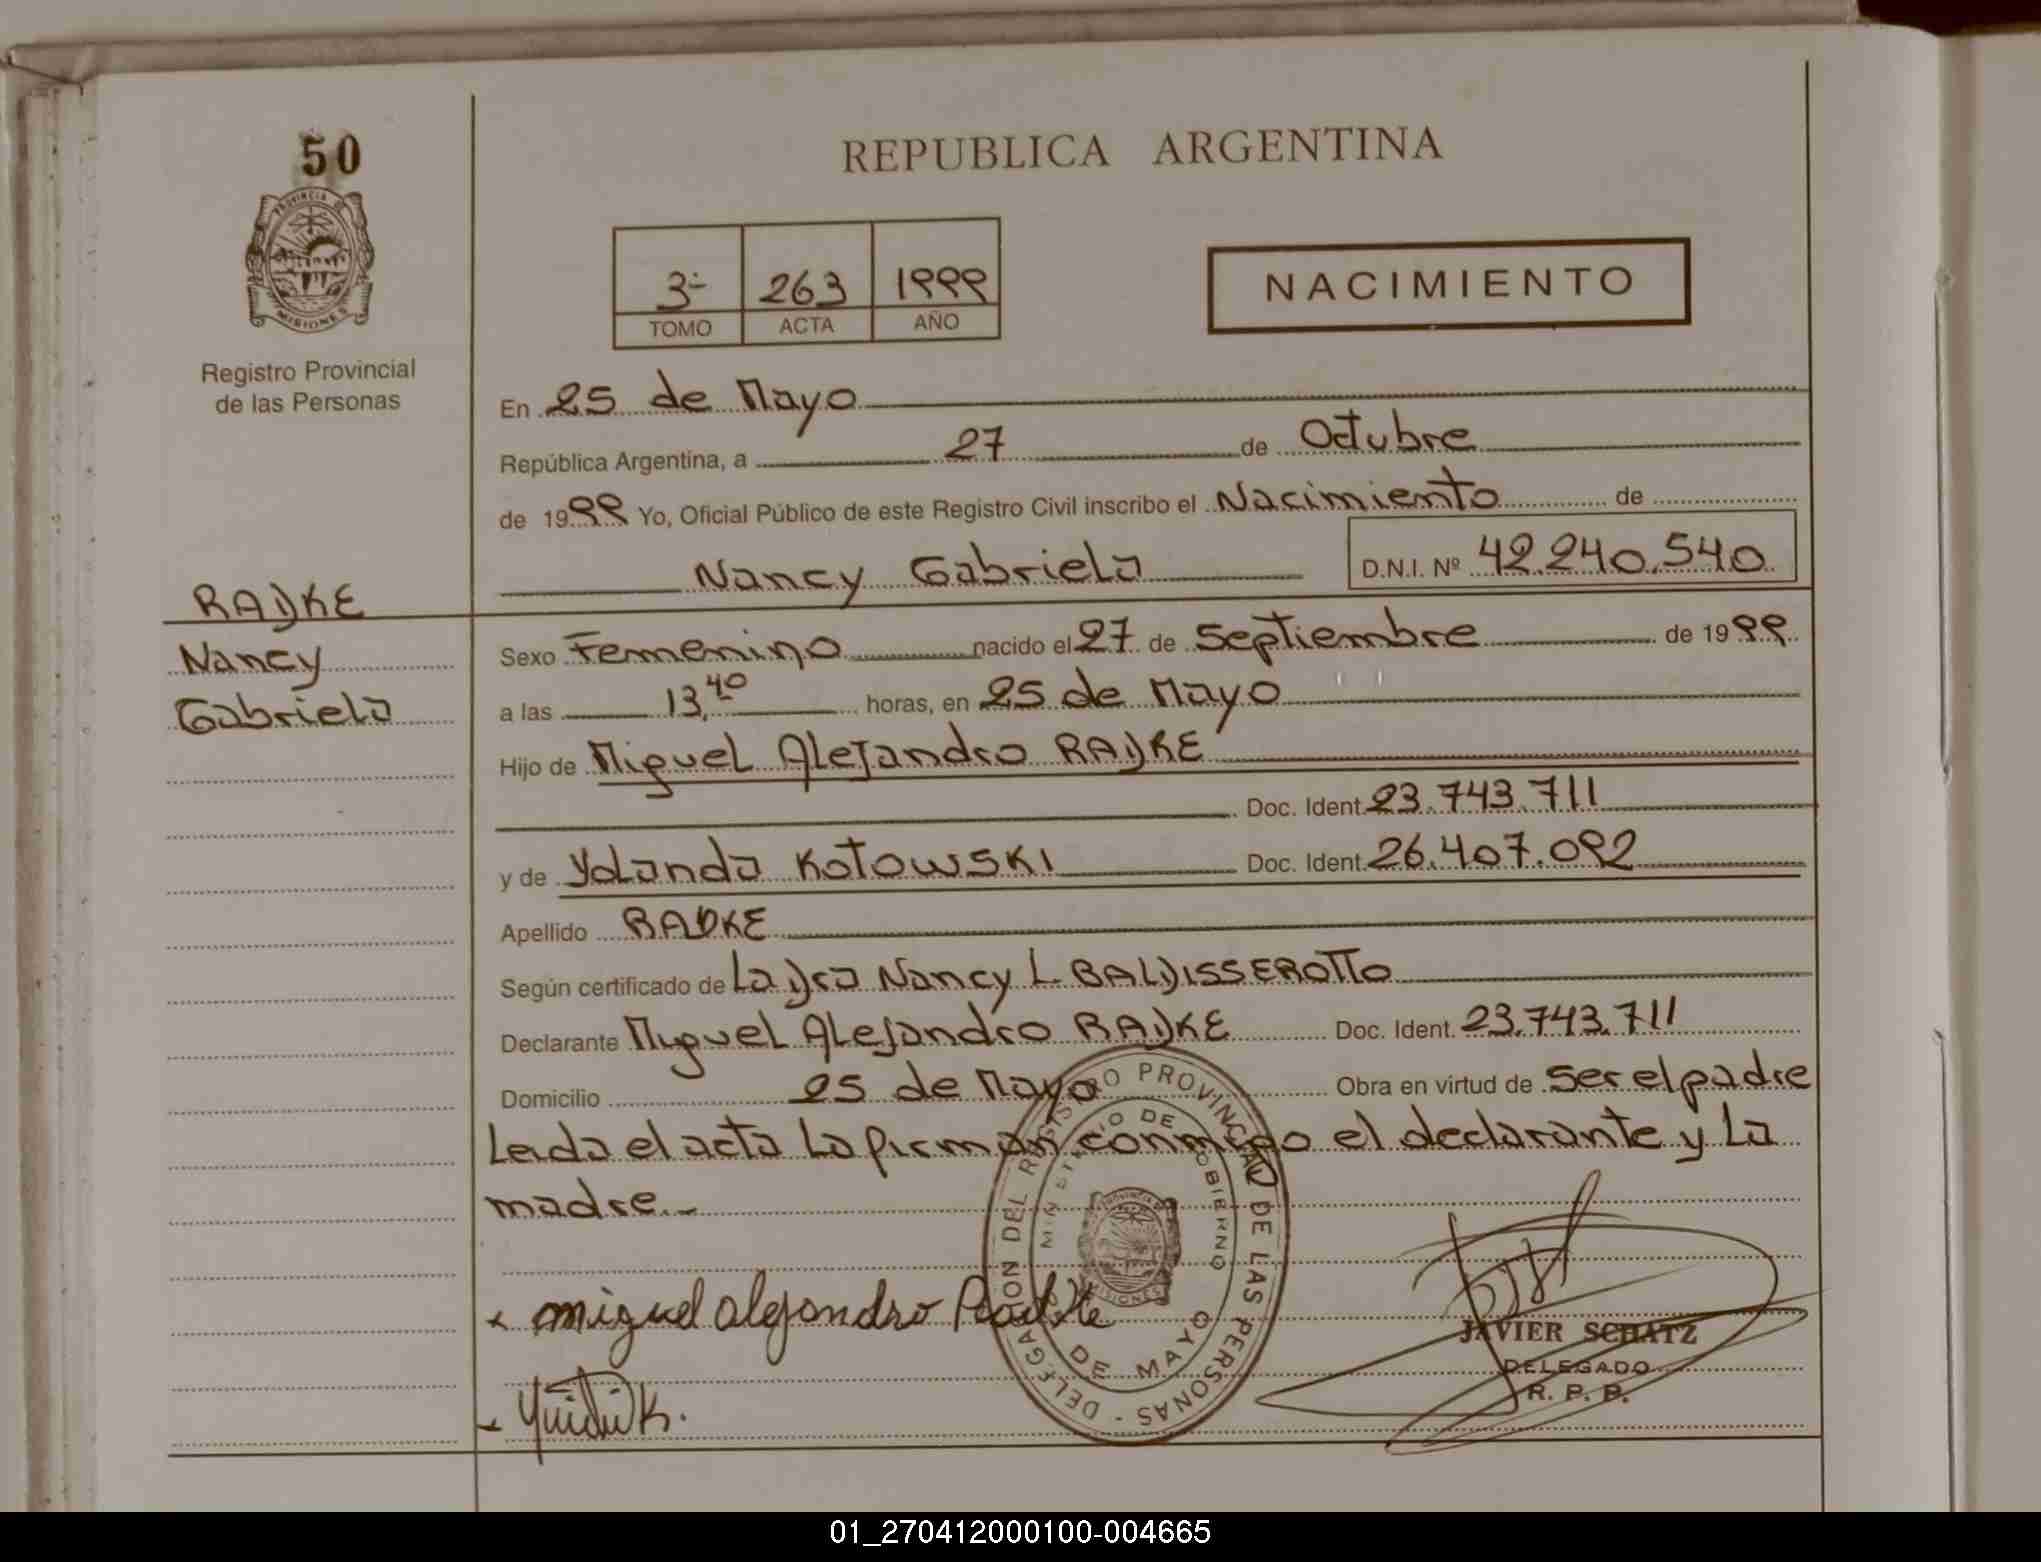 50
REPUBLICA ARGENTINA
PROVINCIA D
MISIONES
3- 263 1999
TOMO ACTA AÑO
NACIMIENTO
Registro Provincial
de las Personas
En 25 de Mayo
República Argentina, a 27 de Octubre
de 1999 Yo, Oficial Público de este Registro Civil inscribo el Nacimiento de
Nancy Gabriela D.N.I. Nº 42.240.540
RADKE
Nancy
Gabriela
Sexo Femenino nacido el 27 de Septiembre de 1999
a las 13,40 horas, en 25 de Mayo
Hijo de Miguel Alejandro RADKE
Doc. Ident. 23.743.711
y de Yolanda KOTOWSKI Doc. Ident. 26.407.092
Apellido RADKE
Según certificado de La Dra Nancy L. BALDISSEROTTO
Declarante Miguel Alejandro RADKE Doc. Ident. 23.743.711
Domicilio 25 de Mayo Obra en virtud de Ser el padre
Leida el acta La firman conmigo el declarante y La
madre.-
DELEGACION DEL REGISTRO PROVINCIAL DE LAS PERSONAS -
MINISTERIO DE GOBIERNO
MISIONES
DE MAYO
miguel alejandro Radke
JAVIER SCHATZ
DELEGADO
R. P. P.
01_270412000100-004665